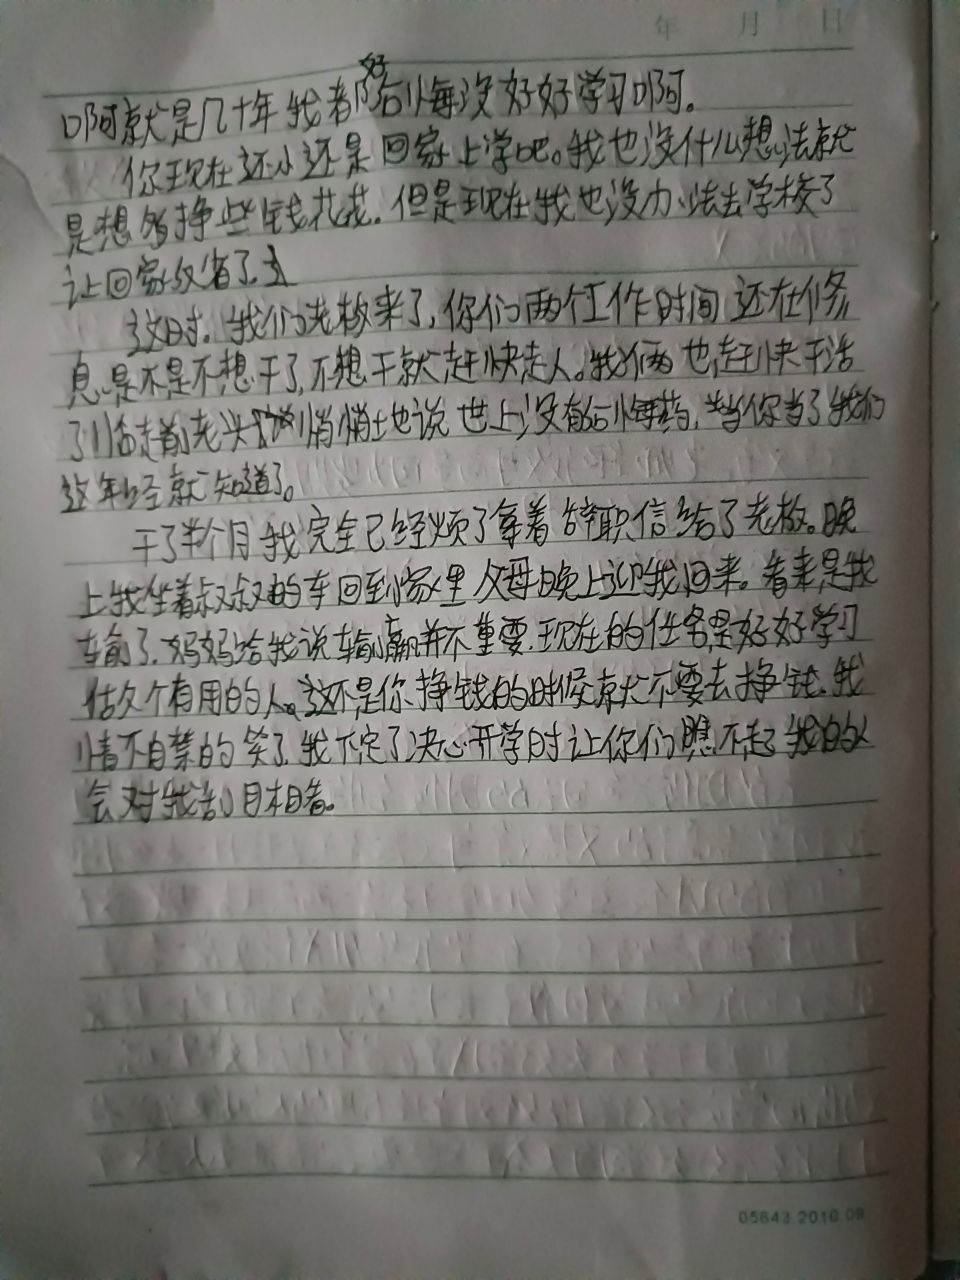 年 月 日
啊就是几十年我都好后悔没好好学习啊。
你现在还小还是回家上学吧。我也没什么想法就
是想多挣些钱花花.但是现在我也没办法去学校了
让回家反省了.
这时.我们老板来了,你们两个工作时间还在休
息是不是不想干了,不想干就赶快走人。我俩也赶快干活
了临走前老头悄悄地说世上没有后悔药,当你当了我们
这年经就知道了。
干了半个月我完全已经烦了拿着辞职信给了老板。晚
上我坐着叔叔的车回到家里父母晚上迎我回来。看来是我
输了.妈妈给我说输赢并不重要.现在的任务是好好学习
做个有用的人。这不是你挣钱的时候就不要去挣钱.我
情不自禁的笑了我下定了决心开学时让你们瞧不起我的人
会对我刮目相看。
05643.2010.09